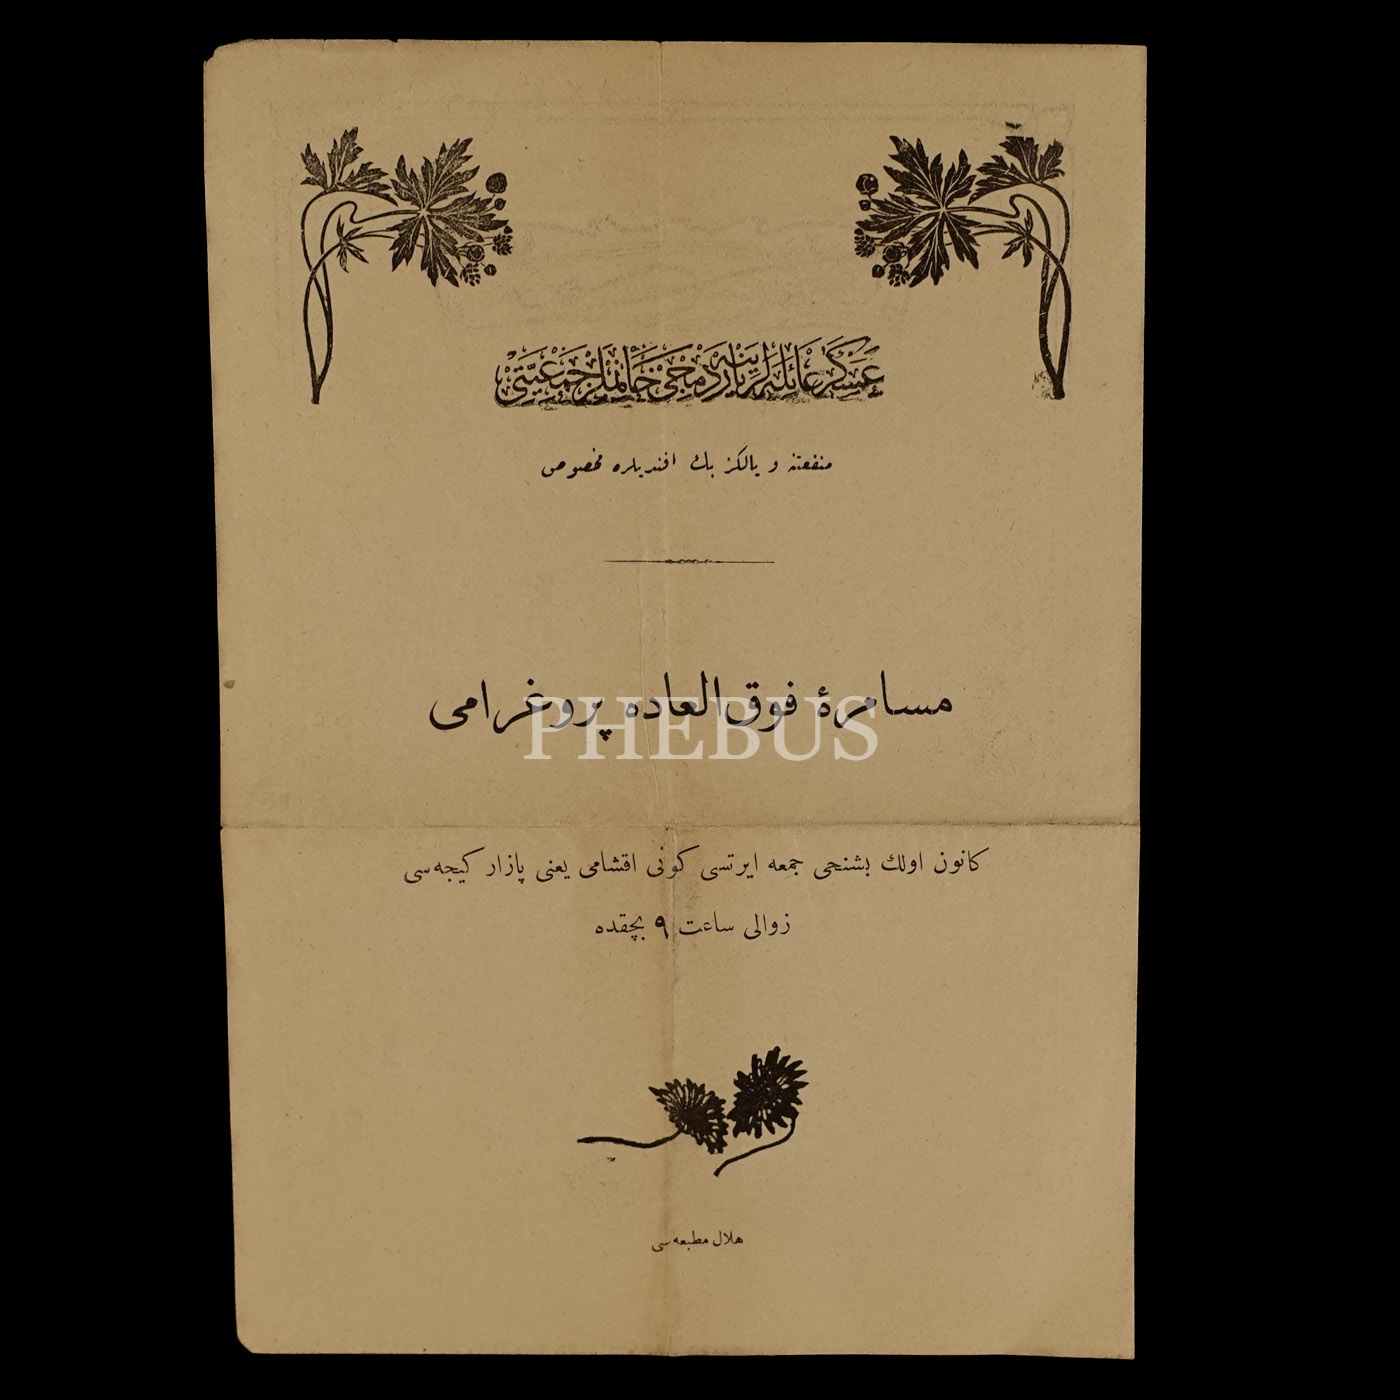 عسكر عائله‌لرينه ياردمجى خانملر جمعيتى
منفعتنه و يالكز بك افنديلره مخصوص
مسامرۀ فوق العاده پروغرامى
PHEBUS
كانون اولك بشنجى جمعه ايرتسى كونى اقشامى يعنى پازار كيجه‌سى
زوالى ساعت ٩ بچقده
هلال مطبعه‌سى